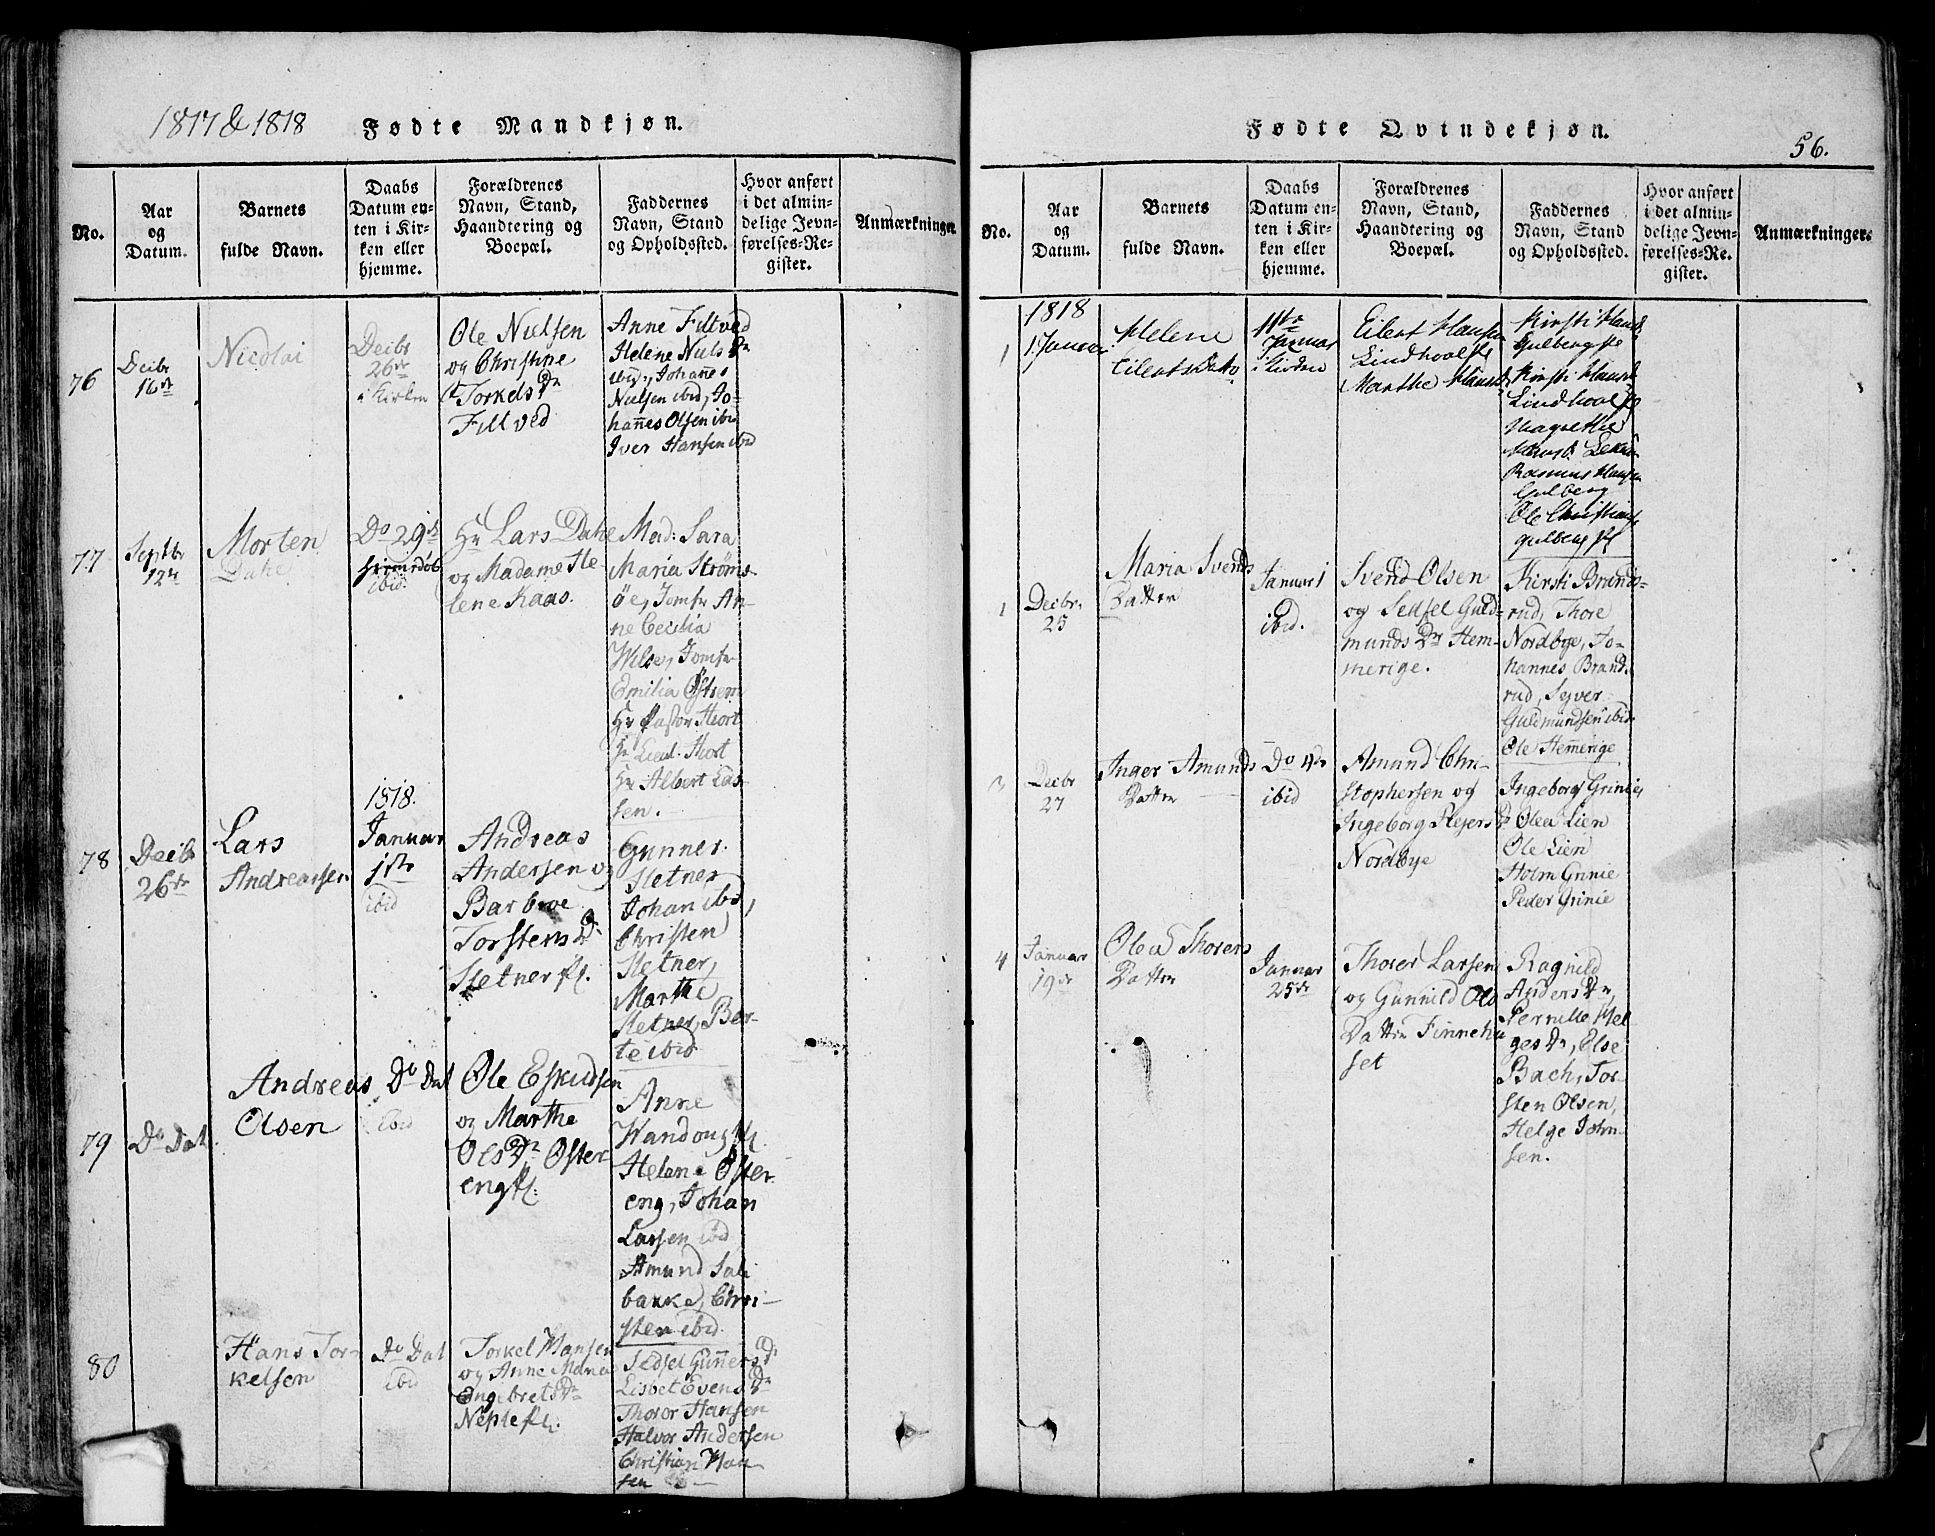 1817 & 1818
Fødte Mandkjøn.
No.
Aar
og
Datum.
Barnets
fulde Navn.
Daabs
Datum en-
ten i Kir-
ken eller
hjemme.
Forældrenes
Navn, Stand,
Haandtering og
Boepæl.
Faddernes
Navn, Stand
og Opholdssted.
Hvor anført
i det almin-
delige Jevn-
førelses-Re-
gister.
Anmærkninger.
76
Decbr
16de
Nicolai
Decbr
26de
i Kirken
Ole Nielsen
og Christine
Torkelsdr
Filtved
Anne Filtved
Helene Nielsdr
ibid, Johanes
Nielsen ibid, Jo-
hannes Olsen ibid
Iver Hansen ibid
77
Septbr
12te
Morten
Dahe
Do 29de
ibid
Hr Lars Dahe
og Madame He-
lene Kaas.
Mad: Sara
Maria Strøms-
øe, Jomfr An-
ne Cecilia
Wilse, Jomfr
Emilia
Hr Pastor Hiort
Hr Lieut. Hiort
Hr Albert Las-
sen.
78
Decbr
26de
Lars
Andreassen
1818.
Januar
1ste
ibid
Andreas
Andersen og
Barbroe
Torstensdr
Stetner
Gunner
Stetner
Johan ibid,
Christen
Stetner,
Marthe
Stetner, Ber-
te ibid
79
Do Dat.
Andreas
Olsen
Do Dat
ibid
Ole Eskildsen
og Marthe
Olsdr Øster
eng
Anne
Helene Øster
eng, Johan
Larsen ibid
Amund Sole
bakke, Chri-
sten ibid
80
Hans Tor-
kelsen
Do Dat
ibid
Torkel Hansen
og Anne Maria
Engebretsdr
Sedsel Gunnersdr
Lisbet Evensdr
Thoror Hansen
Halvor Andersen
Christian Han-
sen
Fødte Qvindekjøn.
56.
No.
Aar
og
Datum.
Barnets
fulde Navn.
Daabs
Datum en-
ten i Kir-
ken eller
hjemme.
Forældrenes
Navn, Stand,
Haandtering og
Boepæl.
Faddernes
Navn, Stand
og Opholdssted.
Hvor anført
i det almin-
delige Jevn-
førelses-Re-
gister.
Anmærkninger.
1
1818
1 Januar
Helene
Eilertsdatter
Januar
i Kirken
Eilert Hansen
Marthe Hansd
Kirsti Hansd
Kirsti Hansd
Magrethe
Hansd.
Rasmus Hansen
Gulberg
Ole Christians
1
Decbr.
25
Maria Svends
Datter
Januar 1
ibid.
Svend Olsen
og Sedsel Guld-
munds Dr Hem-
merige.
Kirsti Brands-
rud, Thore
Nordbye, Jo-
hannes Brands
rud, Syver
Guldmundsen ibid
Ole Hemerige
3
Decbr
27
Inger Amunds
Datter
Do
ibid
Amund Chri-
stophersen og
Ingeborg Pejersdr
Nordbye
Ingeborg Grinie,
Olea Lien
Ole Lien
Holm Grinie
Peder Grinie
4
Januar
19de
Olea Thorers
Datter
Januar
25de
Thorer Larsen
og Gunnild Ols
Datter Finnehu
set
Ragnild
Andersdr,
Pernille Hel
gesdr, Else
Bach, Tor-
sten Olsen,
Helge John-
sen.